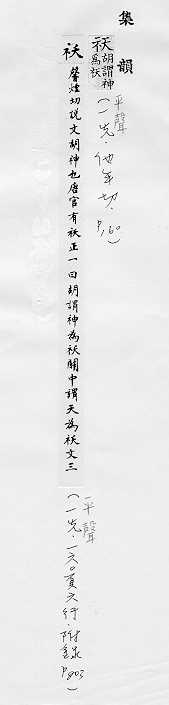 集韻
祆胡謂神為祆
平聲
(一先.他年切.P.160)
祆馨煙切說文胡神也唐官有祆正一曰胡謂神為祆關中謂天為祆文三
平聲
(一先.一六○頁六行.附錄P.803)